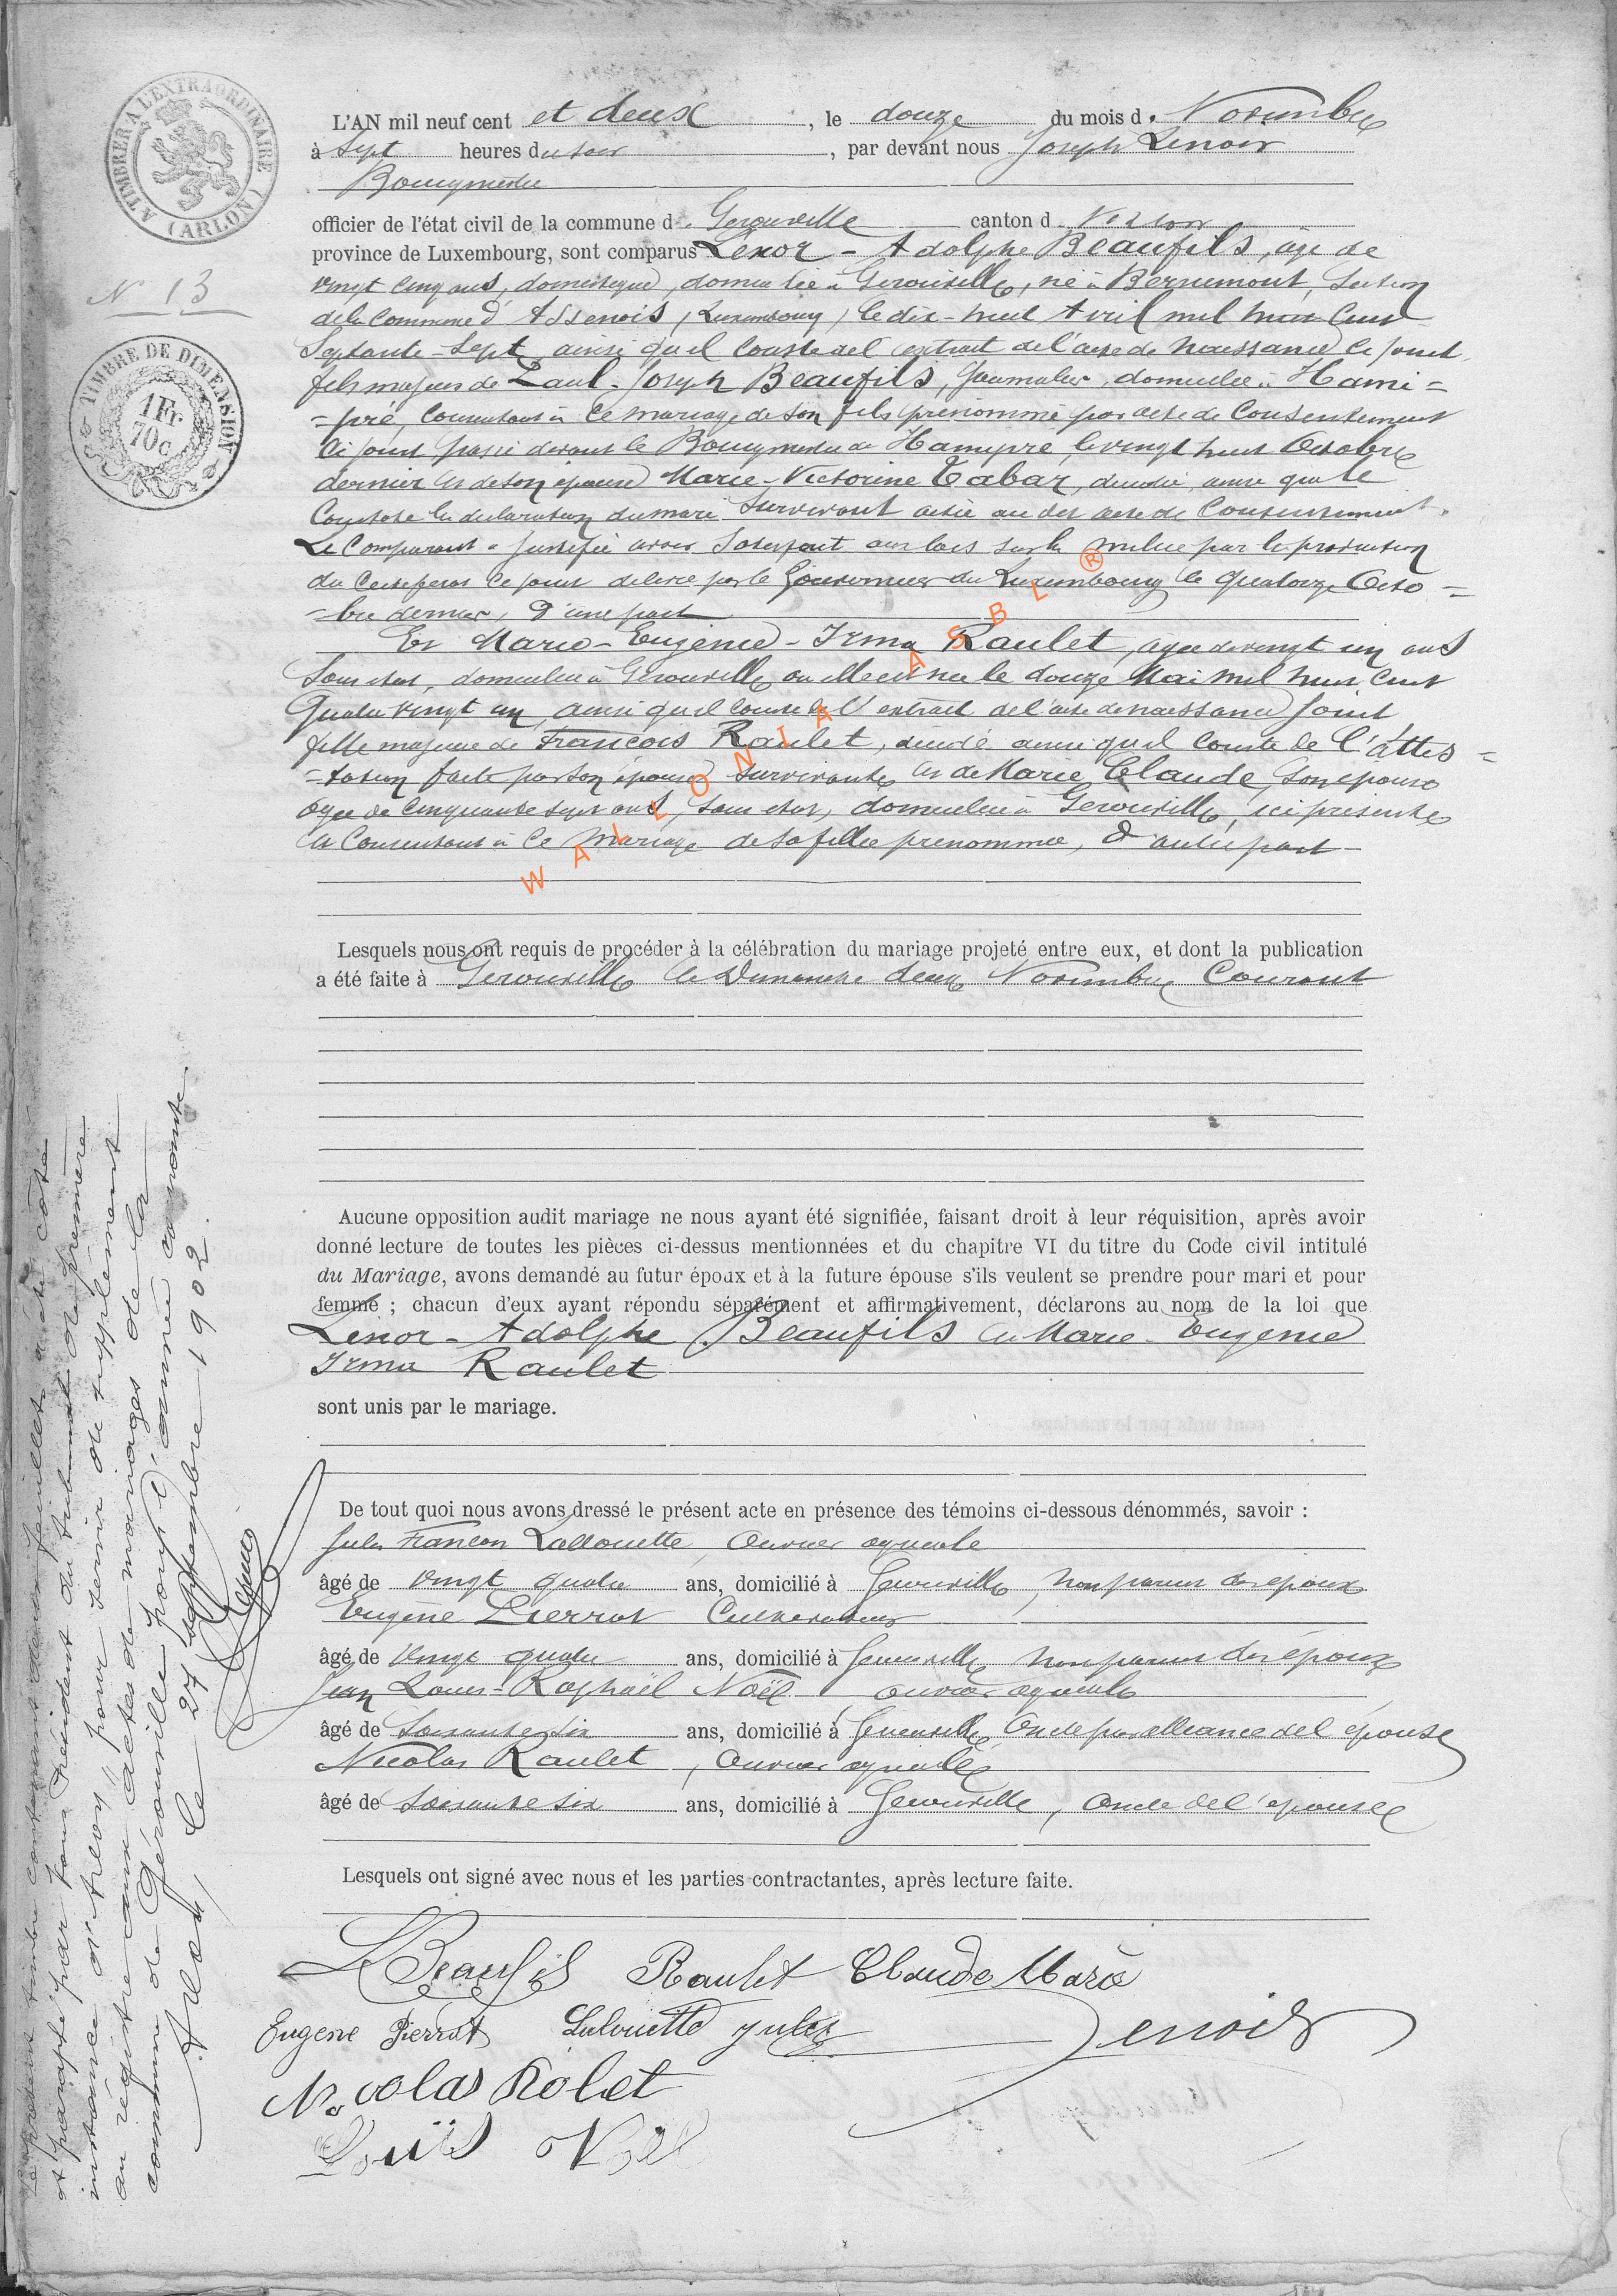 A TIMBRER A L'EXTRAORDINAIRE
(ARLON)
N° 13
TIMBRE DE DIMENSION
1Fr.
70c
L'AN mil neuf cent et deux, le douze du mois d. Novembre
à sept heures du soir, par devant nous Joseph Lenoir
Bourgmestre
officier de l'état civil de la commune d. Gerouville canton d. Virton
province de Luxembourg, sont comparus Lenor - Adolphe Beaufils, âgé de
vingt cinq ans, domestique, domicilié à Gerouville, né à Bernimont, Section
de la Commune d'Assenois (Luxembourg) le dix-huit Avril mil huit Cent
Septante-Sept ainsi qu'il Conste del extrait del'acte de Naissance ci joint
fils majeur de Paul-Joseph Beaufils, Journalier, domicilié à Hami=
=pré, Consentant à ce mariage de son fils prénommé par acte de Consentement
ci joint passé devant le Bourgmestre de Hamipré le vingt huit Octobre
dernier et de son épouse Marie-Victorine Tabar, décédée, ainsi que le
Constate la déclaration du mari Survivant actée au dit acte de Consentement.
Le Comparant a justifié avoir Satisfait aux lois sur la milice par la production
du Certificat ci joint délivré par le Gouverneur du Luxembourg le quatorze Octo=
=bre dernier, D'une part
Et Marie-Eugénie-Irma Raulet, agée de vingt un ans
Sans état, domiciliée à Gerouville où elle est née le douze Mai mil huit Cent
Quatre vingt un, ainsi qu'il Conste de l'extrait del'acte de naissance joint
fille majeure de François Raulet, décédé ainsi qu'il Conste de l'attes=
=tation faite par son épouse Survivante et de Marie Claude, son épouse
agée de Cinquante sept ans, sans état, domiciliée à Gerouville, ici présente
et Consentant à ce Mariage de sa fille prénommée, D'autre part
WALLONIA ASBL ®
Lesquels nous ont requis de procéder à la célébration du mariage projeté entre eux, et dont la publication
a été faite à Gerouville le Dimanche deux Novembre Courant
Aucune opposition audit mariage ne nous ayant été signifiée, faisant droit à leur réquisition, après avoir
donné lecture de toutes les pièces ci-dessus mentionnées et du chapitre VI du titre du Code civil intitulé
du Mariage, avons demandé au futur époux et à la future épouse s'ils veulent se prendre pour mari et pour
femme ; chacun d'eux ayant répondu séparément et affirmativement, déclarons au nom de la loi que
Lenor-Adolphe Beaufils et Marie-Eugénie
Irma Raulet
sont unis par le mariage.
De tout quoi nous avons dressé le présent acte en présence des témoins ci-dessous dénommés, savoir :
Jules Lallouette, Ouvrier agricole
âgé de vingt quatre ans, domicilié à Gerouville, Non parent des époux
Eugène Pierrot Cultivateur
âgé de vingt quatre ans, domicilié à Gerouville Non parent des époux
Jean Louis-Raphaël Noël ouvrier agricole
âgé de soixante six ans, domicilié à Gerouville, Oncle par alliance del épouse
Nicolas Raulet, Ouvrier agricole
âgé de soixante six ans, domicilié à Gerouville, Oncle del'épouse
Lesquels ont signé avec nous et les parties contractantes, après lecture faite.
L Beaufils Raulet Claude Marie
Eugene Pierrot Lalouette Jules Lenoir
Nicolas Rolet
Louis Noël
Le présent timbre contenant deux feuillets a été coté
et paraphé par Nous Président du tribunal de première
instance d'Arlon, pour servir de supplément
au régistre aux actes de mariages de la
commune de Gérouville pour l'année courante.
Arlon, le 27 septembre 1902.